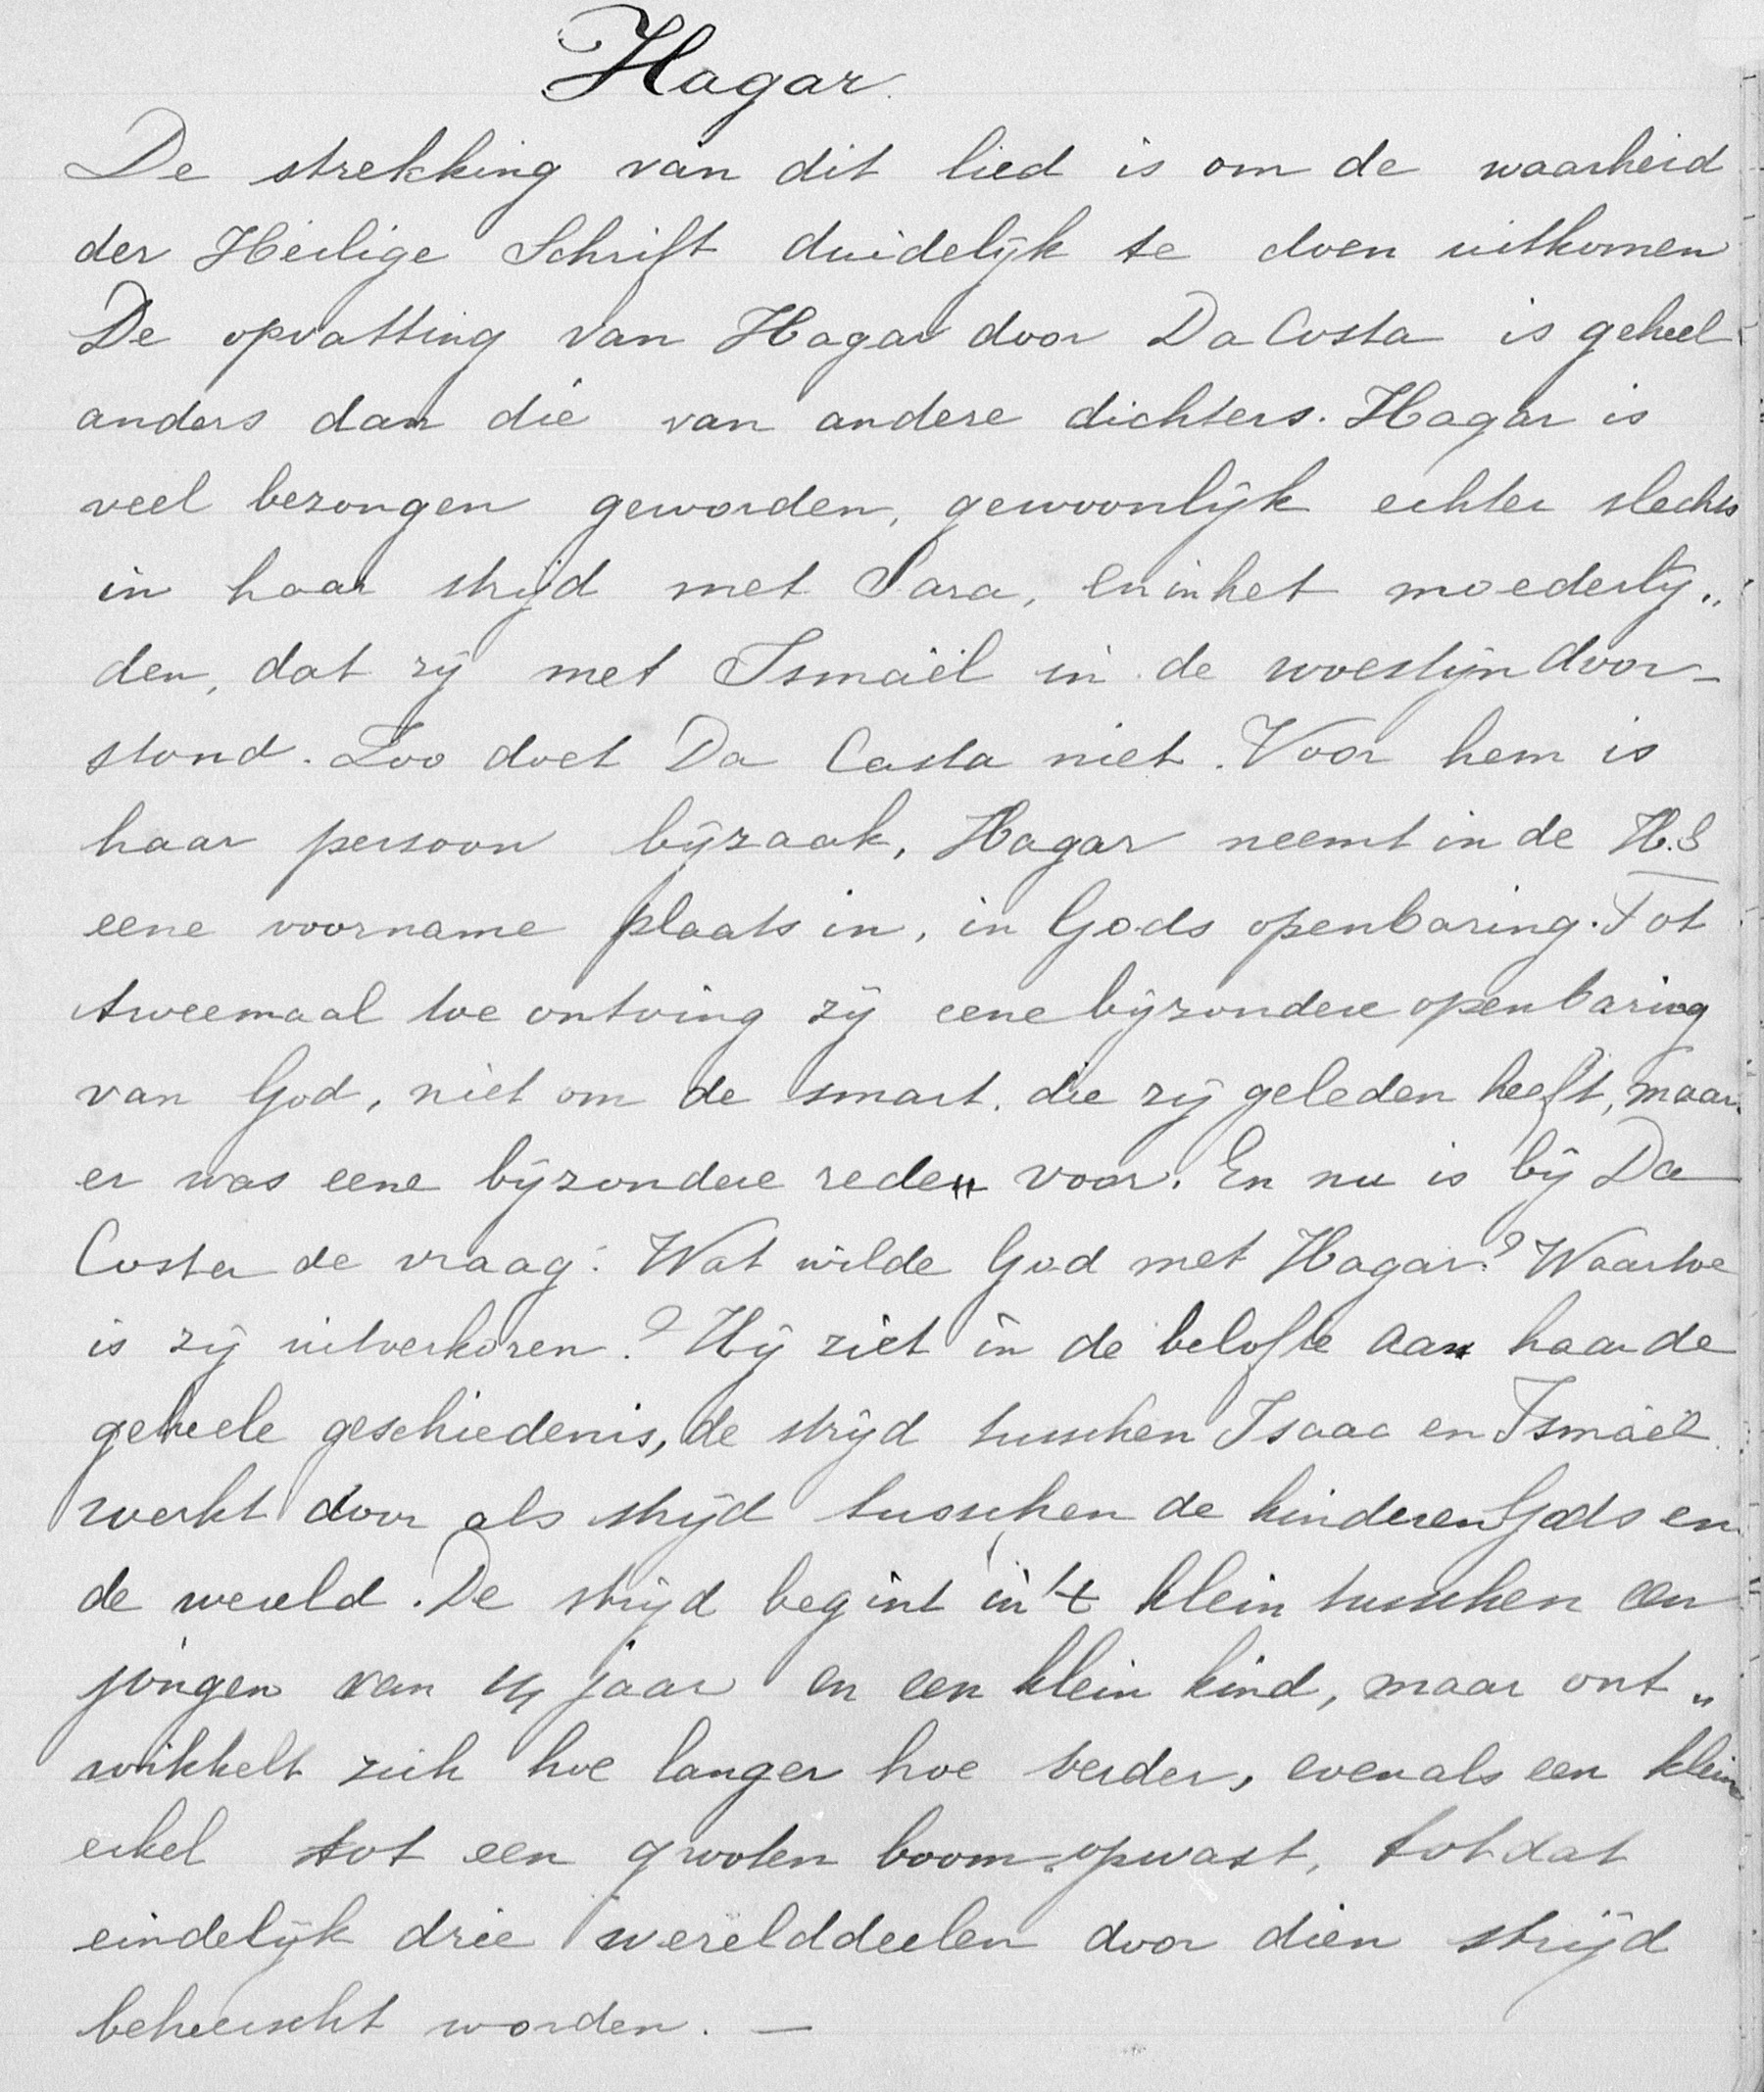 Hagar.
De strekking van dit lied is om de waarheid
der Heilige Schrift duidelijk te doen uitkomen
De opvatting van Hagar door Da Costa is geheel
anders dan die van andere dichters. Hagar is
veel bezongen geworden, gewoonlijk echter slechts
in haar strijd met Sara, en in het moederlij„
den, dat zij met Ismaël in de woestijn door-
stond. Zoo doet Da Costa niet. Voor hem is
haar persoon bijzaak, Hagar neemt in de H.S
eene voorname plaats in, in Gods openbaring. Tot
tweemaal toe ontving zij eene bijzondere openbaring
van God, niet om de smart, die zij geleden heeft, maar
er was eene bijzondere reden voor. En nu is bij Da
Costa de vraag: Wat wilde God met Hagar? Waartoe
is zij uitverkoren? Hij ziet in de belofte aan haar de
geheele geschiedenis, de strijd tusschen Isaac en Ismaël
werkt door als strijd tusschen de kinderen Gods en
de wereld. De strijd begint in 't klein tusschen een
jongen van 14 jaar en een klein kind, maar ont„
wikkelt zich hoe langer hoe verder, evenals een klein
eikel tot een grooten boom opwast, totdat
eindelijk drie werelddeelen door dien strijd
beheerscht worden. —